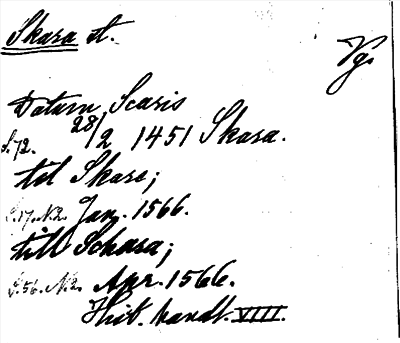 Skara st.
Vg.
Datum Scaris
S. 72. 28/2 1451 Skara.
till Skars;
S. 17. N. 2. Jan. 1566.
till Schara;
S. 56. N. 2. Apr. 1566.
Hist. handl. VIII.